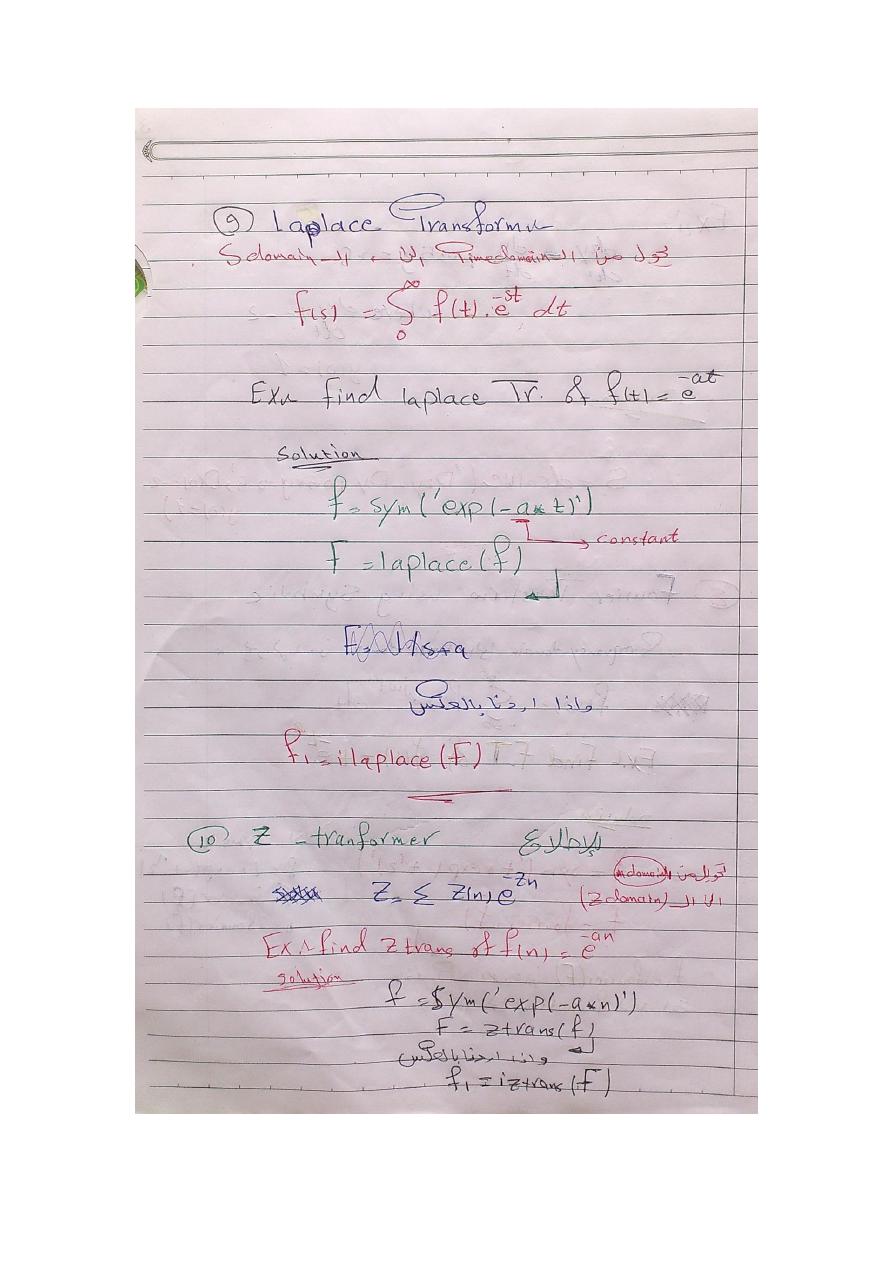 9 Laplace Transform
نحول من الـ Time domain الى الـ S domain .
f(s) = ∫₀^∞ f(t) . e^-st dt
Ex find laplace Tr. of f(t) = e^-at
Solution
f = sym('exp(-a*t)')
constant
F = laplace(f)
واذا اردنا بالعكس
f1 = ilaplace(F)
10 Z - tranformer للإطلاع
نحول من الـ n domain
Z = Σ Z(n) e^-Zn
الى الـ (Z domain)
Ex find Z trans of f(n) = e^-an
solution
f = sym('exp(-a*n)')
F = ztrans(f)
واذا اردنا بالعكس
f1 = iztrans(F)